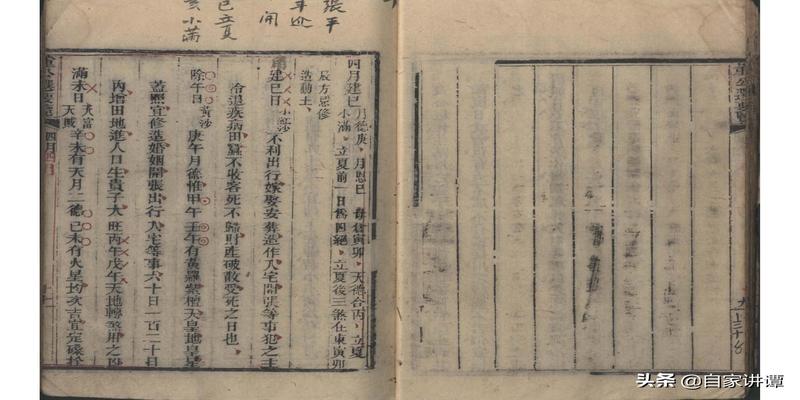 張平
立夏
小滿
開
四月建巳 月德庚 月恩巳 寅卯 天德合丙 立夏
小滿 立夏前一日爲四絕 立夏後三煞在東寅卯
辰方忌修
造動土
建巳日 小紅沙 不利出行嫁娶安葬造作入宅開張等事犯之主
冷退疾病田蠶不收客死不歸財產破散受死之日也
除午日 黃沙 庚午月德惟甲午壬午有黃羅紫檀天皇地皇星
蓋照宜修造婚姻開張出行入宅等事六十日一百二十日
內增田地進人口生貴子大旺丙午戊午天地轉煞用之凶
滿未日 天富 天賊 辛未有天月二德巳未有火星均次吉宜定磉拴
四月
頭条 @自家讲谭